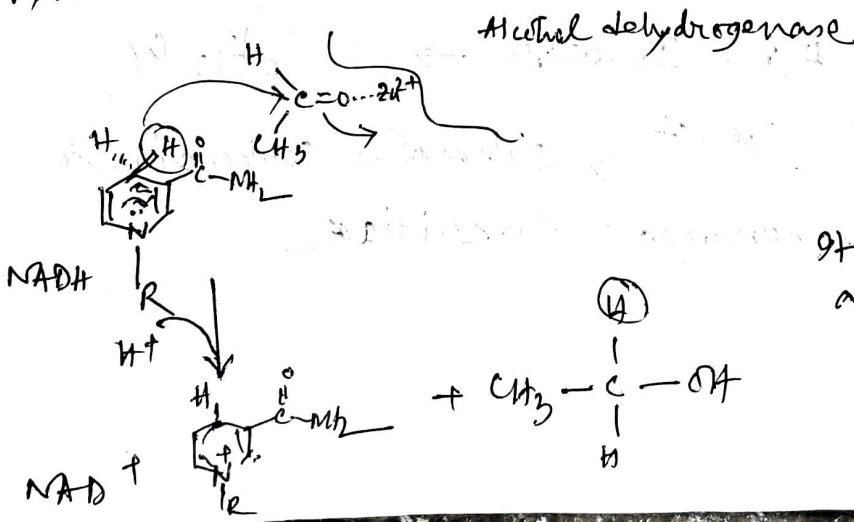 Alcohol dehydrogenase
H
C=O...Zn²⁺
CH₃
H H O
C-NH₂
N
NADH
R
H⁺
H O
C-NH₂
N
R
NAD⁺
+ CH₃-C-OH
H
H